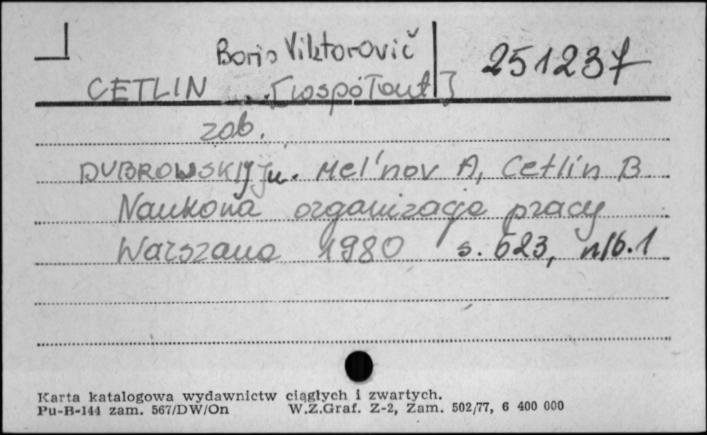 Boris Viktorovič
251237
CETLIN ... [współaut]
zob.
DUBROWSKIJ Ju. Mel'nov A, Cetlin B
Naukowa organizacja pracy
Warszawa 1980 s. 623, nlb. 1
Karta katalogowa wydawnictw ciągłych i zwartych.
Pu-B-144 zam. 567/DW/On W.Z.Graf. Z-2, Zam. 502/77, 6 400 000